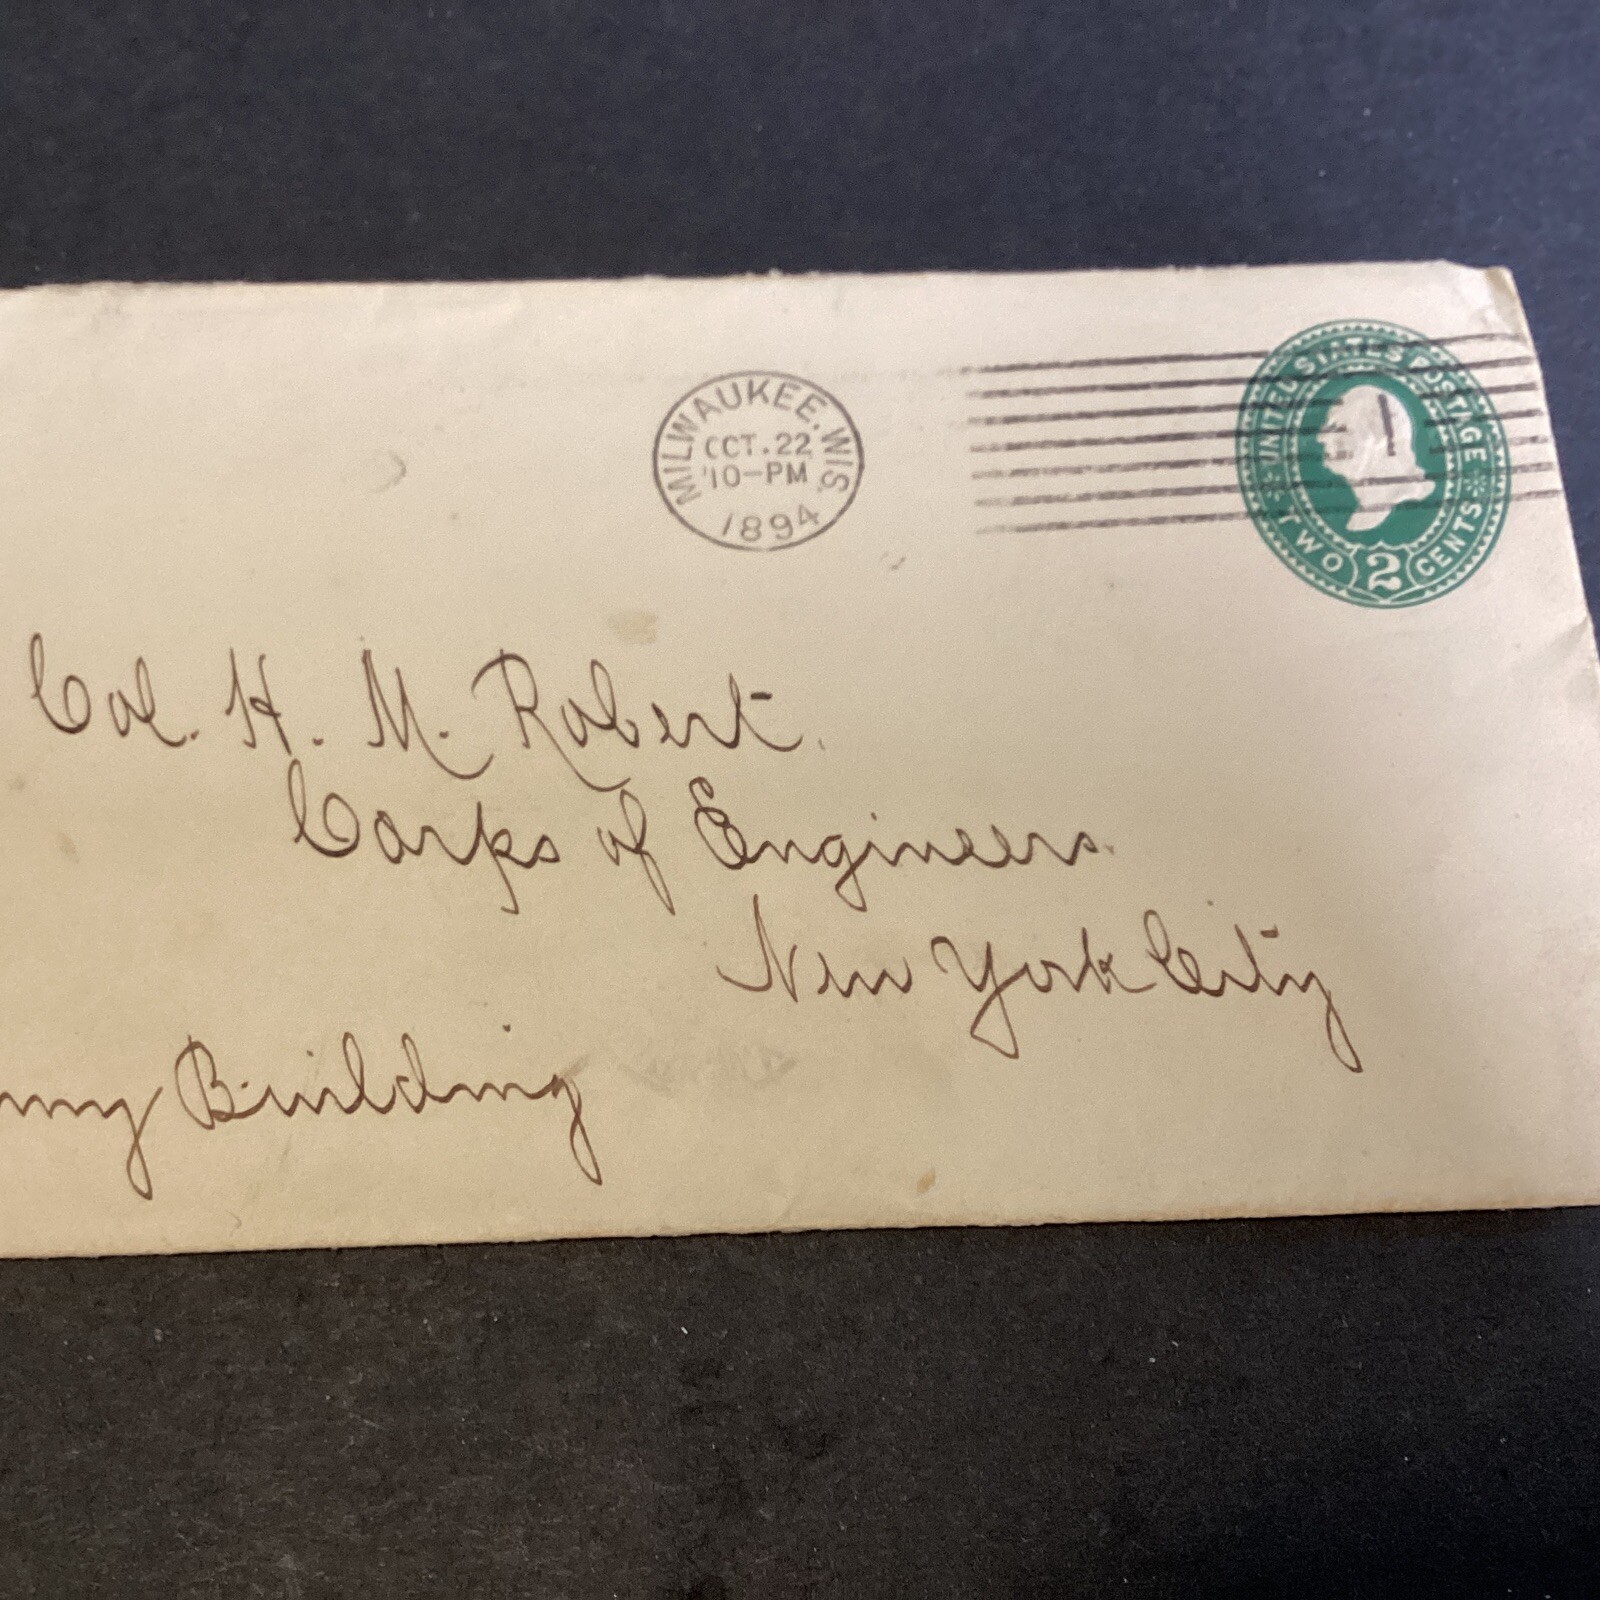 MILWAUKEE, WIS.
OCT. 22
10-PM
1894
UNITED STATES POSTAGE
TWO 2 CENTS
1
Col. H. M. Robert.
Corps of Engineers.
New York City
my Building